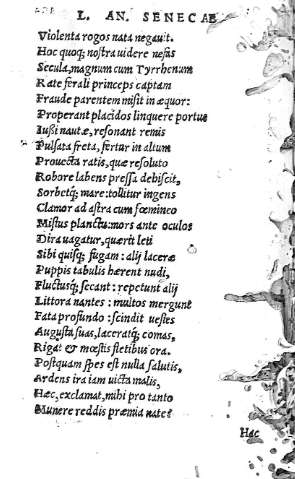 L. AN. SENECAE
Violenta rogos nata negauit.
Hoc quoq; nostra uidere nefas
Secula, magnum cum Tyrrhenum
Rate ferali princeps captam
Fraude parentem misit in æquor:
Properant placidos linquere portus
Iußi nautæ, resonant remis
Pulsata freta, fertur in altum
Prouecta ratis, quæ resoluto
Robore labens pressa dehiscit,
Sorbetq; mare: tollitur ingens
Clamor ad astra cum fœmineo
Mistus planctu: mors ante oculos
Dira uagatur, quærit leti
Sibi quisq; fugam: alij laceræ
Puppis tabulis hærent nudi,
Fluctusq; secant: repetunt alij
Littora nantes: multos mergunt
Fata profundo: scindit uestes
Augusta suas, laceratq; comas,
Rigat & mœstis fletibus ora.
Postquam spes est nulla salutis,
Ardens ira iam uicta malis,
Hæc, exclamat, mihi pro tanto
Munere reddis præmia nate?
Hac